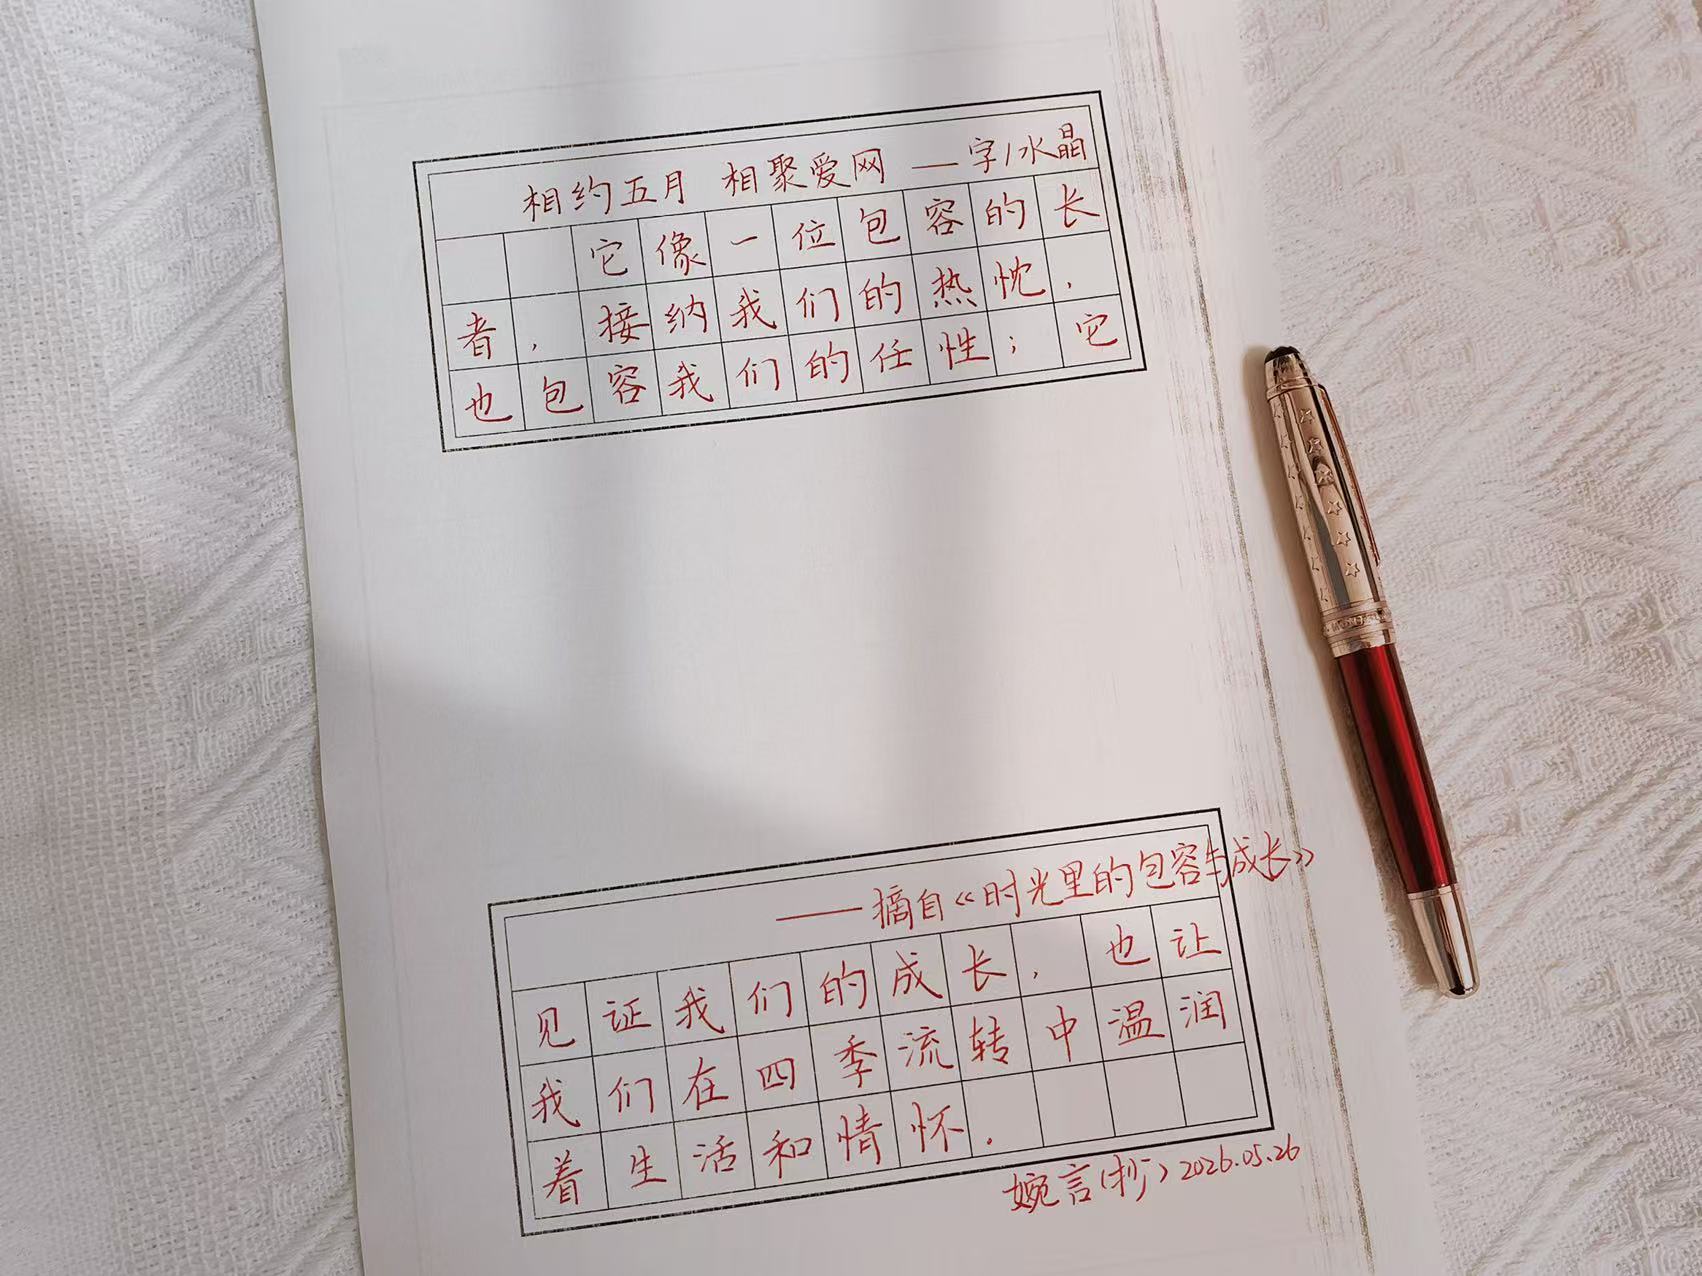 相约五月 相聚爱网 —字/水晶
它像一位包容的长
者，接纳我们的热忱，
也包容我们的任性；它
——摘自《时光里的包容与成长》
见证我们的成长，也让
我们在四季流转中温润
着生活和情怀。
婉言(抄) 2026.05.26